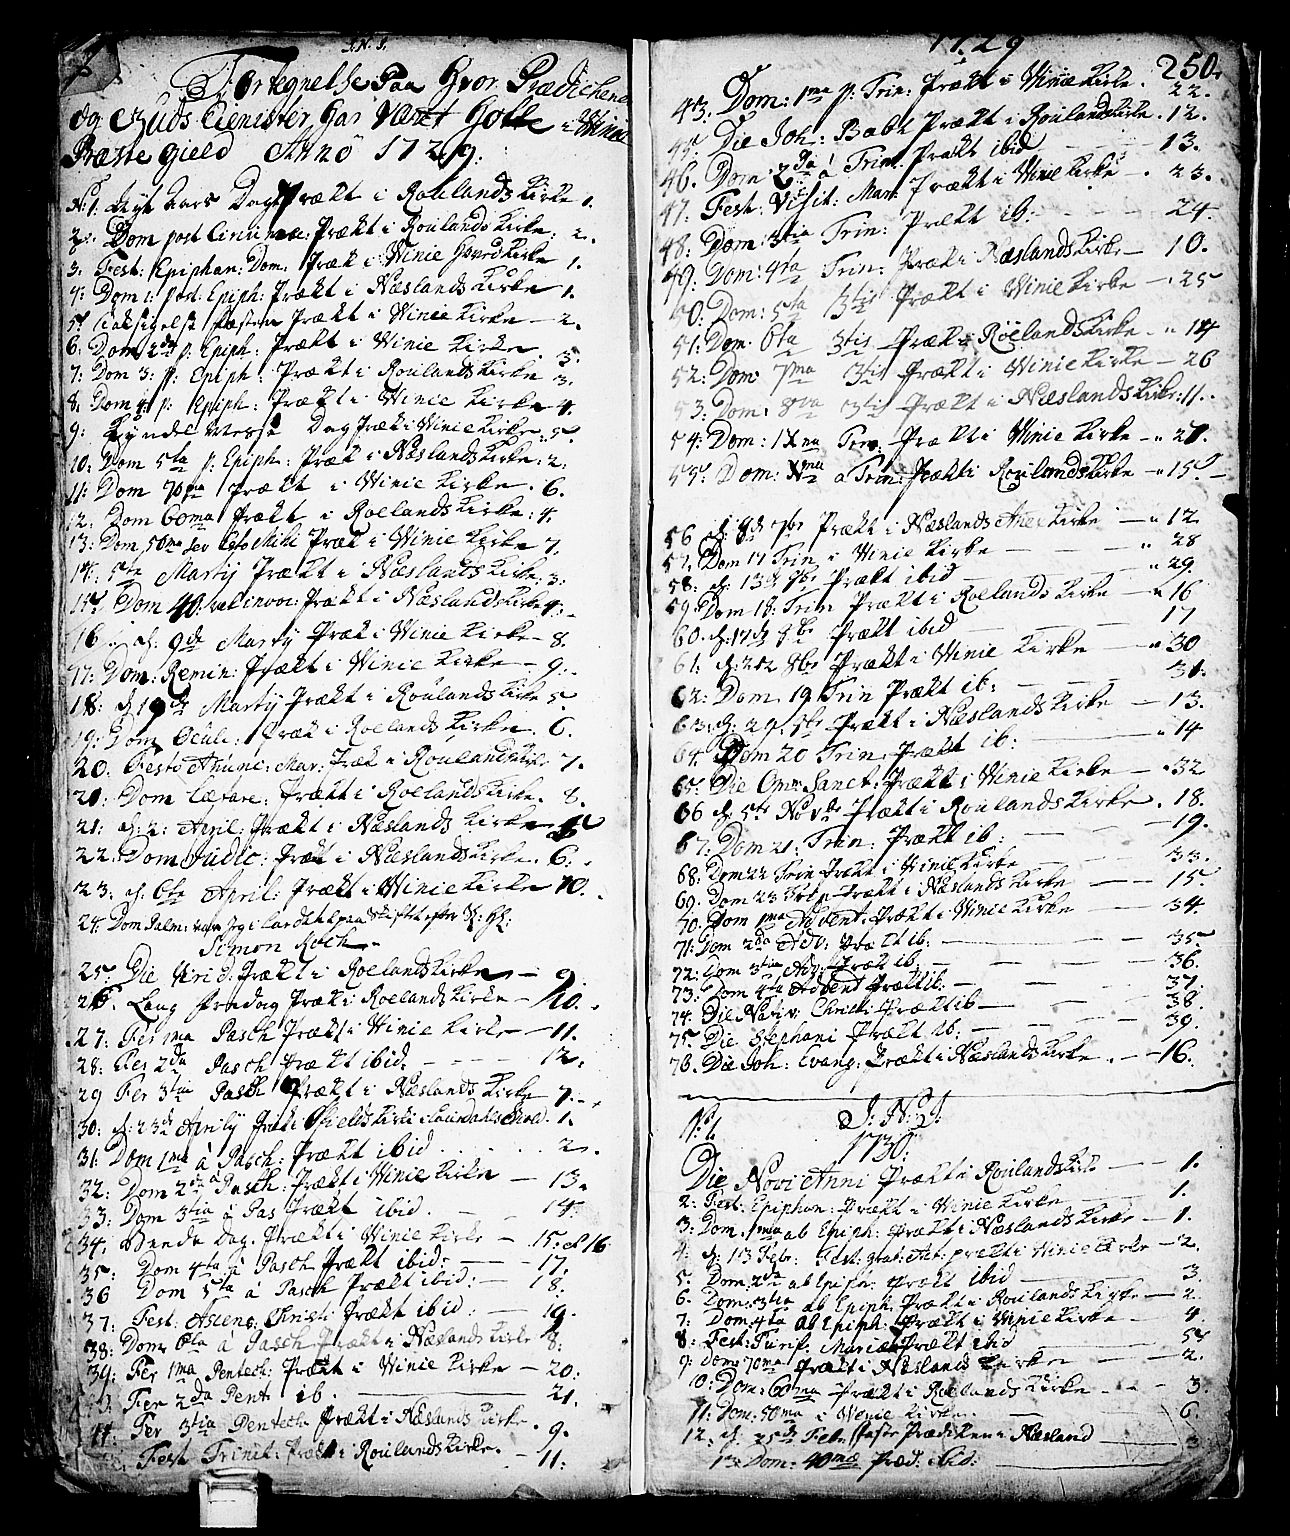 J. N. J.
Fortegnelse Paa Hvor Prædichener
og Guds Tienister har Været Holt i Winie
Præste Gield Anno 1729.
N: 1. Nyt Aars Dag Prækt i Roulands Kirke 1.
2. Dom post Circumc: Prækt i Roulands Kirke: 2.
3. Fest: Epiphan: Dom: Præk i Winie Hoved Kirke 1.
4: Dom 1: post: Epiph: Prækt i Næslands Kirke 1.
5. Taksigelse Festen Prækt i Winie Kirke — 2.
6: Dom 2da p: Epiph: Prækt i Winie Kirke. 3.
7: Dom 3: p: Epiph: Prækt i Roulands Kirke 3.
8. Dom 4: p: Epiph: Prækt i Winie Kirke 4.
9: Kyndel Messe Dag Præk i Winie Kirke: 5.
10: Dom 5ta p: Epiph: Præk i Næslands Kirke: 2:
11: Dom 70ma Prækt i Winie Kirke. 6.
12: Dom 60ma Prækt i Roelands Kirke: 4.
13: Dom 50ma sev Esto Mihi Præk i Winie Kirke 7.
14. 5te Martij Prækt i Næslands Kirke: 3:
15. Dom 40. Invoc: Prækt i Næslands Kirke 4:
16. d. 9de Martij Præk i Winie Kirke — 8.
17: Dom: Remin: Prækt i Winie Kirke — 9.
18: d 19de Martij Prækt i Roulands Kirke 5.
19: Dom Oculi: Præk i Roelands Kirke. 6.
20. Festo Anunc: Mar: Præk i Roulands Kirke 7.
20: Dom Lætare: Prækt i Roelands Kirke. 8.
21: d: 2: April: Prækt i Næslands Kirke 5
22: Dom Judic: Prækt i Næslands Kirke. 6.
23: d. 6te April: Prækt i Winie Kirke 10.
24: Dom Palm: var Jeg i Lardahl paa Skiftet efter S: Hr:
Simon Koch
25: Die Virid: Prækt i Roelands Kirke — 9.
26. Lang Fredag Præk i Roelands Kirke — 10.
27: Fer 1ma Pasch Prækt i Winie Kirke — 11.
28: Fer 2da Pasch Prækt ibid. — 12.
29 Fer 3tia Pasch Prækt i Næslands Kirke 7.
30: d: 23de Aprily Prækt i Kirke i 1.
31: Dom 1ma à Pasch: Prækt ibid 2.
32: Dom 2da à Pasch: Prækt i Winie Kirke — 13.
33: Dom 3tia à Pas Prækt ibid. — 14.
34. Beede Dag. Prækt i Winie Kirke — 15: et 16
35: Dom 4ta à Pasch Prækt ibid: — 17.
36 Dom 5ta à Pasch Prækt ibid: — 18.
37: Fest: Ascens: Christi Prækt ibid: — 19.
38: Dom: 6ta à Pasch Prækt i Næslands Kirke 8.
39: Fer 1ma Pentech: Prækt i Winie Kirke — 20:
Fer 2da Pent ib. — 21.
41: Fer 3tia Pentech Prækt i Næslands Kirke. 9.
Fest Trinit: Prækt i Roulands Kirke. — 11:
1729
250.
43: Dom: 1ma p: Trin: Prækt i Winie Kirke. 22.
45 Die Joh: Babt Prækt i Roulands Kirke. 12.
46. Dom: 2da à Trin: Prækt ibid — 13.
47: Fest: Visit: Mar: Prækt i Winie Kirke — 23.
48: Dom: 3tia Trin: Prækt ib: — 24.
49: Dom: 4ta Trin: Præk i Næslands Kirke — 10.
50: Dom: 5ta Prækt i Winie Kirke — 25
51: Dom. 6ta Præk i Roelands Kirke — 14
52: Dom 7ma Prækt i Winie Kirke — 26
53: Dom: 8va Prækt i Næslands Kirke: 11.
54: Dom: IXna Trin: Prækt i Winie Kirke — 27.
55: Dom: Xma a Trin: Prækt i Roulands Kirke — 15.
56 d: 8de 7br Prækt i Næslands Anex Kirke — 12
57. Dom 17 Trin i Winie Kirke — 28
58: d: 13de 8br Prækt ibid — 29.
59. Dom 18: Trin Prækt i Roelands Kirke — 16
60. d: 17de 8br Prækt ibid — 17
61: d: 8br Prækt i Winie Kirke — 30
62: Dom 19 Trin Prækt ib: — 31.
63: d: 29. 8br Prækt i Næslands Kirke — 13.
64. Dom 20 Trin: Prækt ib: — 14
65. Die Omn: Sanct: Prækt i Winie Kirke — 32
66 d: 5te Novbr Prækt i Roulands Kirke. 18.
67: Dom 21. Trin: Prækt ib: — 19.
68: Dom 22 Trin Prækt i Winie Kirke — 33.
69: Dom 23 Trin Prækt i Næslands Kirke — 15.
70. Dom 1ma Advent: Prækt i Winie Kirke — 34.
71: Dom 2da Adv: Prækt ib: — 35.
72: Dom 3tia Adv: Præk ib: — 36.
73: Dom 4ta Advent Prækt ib: — 37.
74. Die Nativ: Christi Prækt ib — 38.
75. Die Stephani Prækt ib: — 39.
76. Die Joh: Evang: Prækt i Næslands Kirke. — 16.
J: N: J.
N: 1 1730.
Die Novi Anni Prækt i Roulands Kirke — 1.
2: Fest: Epiphan: Prækt i Winie Kirke — 1.
3: Dom: 1ma ab Epiph: Prækt i Næslands Kirke — 1.
4: d: 13 Febr: Fest: prækt i Winie Kirke — 2.
5. Dom 2da ab Epiph: Prækt ibid — 3
6. Dom: 3tia ab Epiph: Prækt i Roulands Kirke — 2.
7: Dom 4ta ab Epiph: Prækt i Winie Kirke — 4.
8: Fest: Purif: Mariæ Prækt ibid — 5
9: Dom: 70ma Prækt i Næslands Kirke — 2.
10: Dom: 60ma Prækt i Roelands Kirke — 3.
11: Dom: 50ma i Winie Kirke. — 6.
12. d. 25de Febr: Prædiken i Næsland — 3
13: Dom: 40ma Præd: ibid: